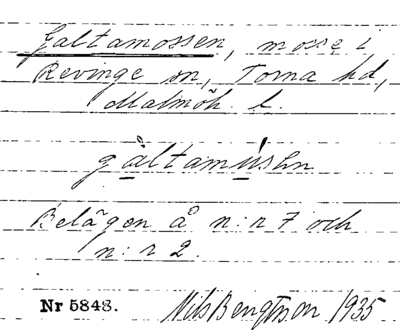 Galtamossen, mosse i
Revinge sn, Torna hd,
Malmöh. l.
gåltamúsen
Belägen å n:r 7 och
n: r 2.
Nr 5848. Nils Bengtsson 1935